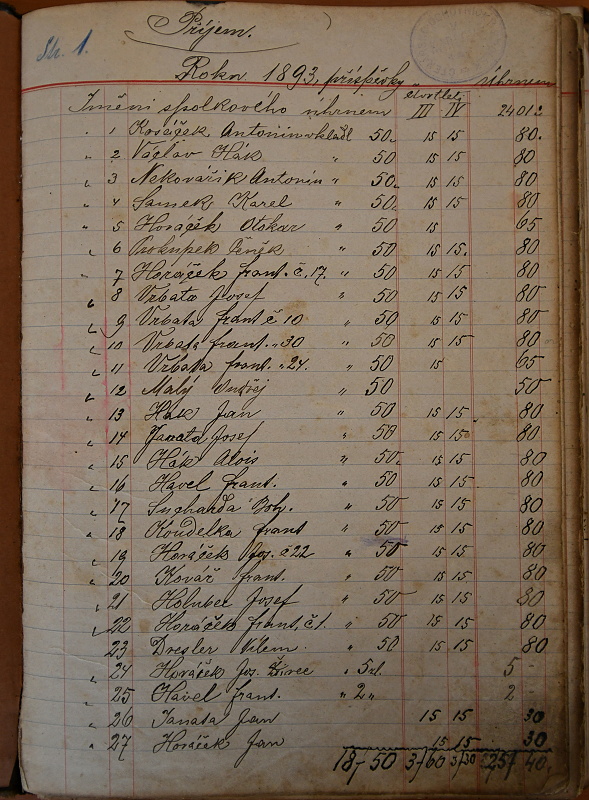 Str. 1.
Příjem.
Roku 1893, příspěvky úhrnem
čtvrtlet.
Jmění spolkového úhrnem III IV 24 01 2
1 Horáček Antonín vklad 50. 15 15 80.
2 Václav Hák " 50 15 15 80
3 Nekovařík Antonín " 50. 15 15 80
4 Samek Karel " 50. 15 15 80
5 Horáček Otokar " 50 15 65
6 Prokůpek Čeněk " 50 15 15. 80
7 Horáček frant. č. 17. " 50 15 15 80
8 Vrbata Josef " 50 15 15 80
9 Vrbata frant č 10 " 50 15 15 80
10 Vrbata frant. " 30 " 50 15 15 80
11 Vrbata frant. " 24. " 50 15 65
12 Malý Ondřej " 50 50
13 Hák Jan " 50 15 15 80
14 Janata Josef " 50 15 15 80
15 Hák Alois " 50. 15 15 80
16 Havel frant. " 50 15 15 80
17 Sucharda Boh. " 50 15 15 80
18 Koudelka frant " 50 15 15 80
19 Horáček Jos. č 22 " 50 15 15 80
20 Kovář frant. " 50 15 15 80
21 Holubec Josef " 50 15 15 80
22 Horáček frant. č 1. " 50 15 15 80
23 Dresler Vilém " 50 15 15 80
24 Horáček Jos. " 5 zl. 5 -
25 Havel frant. " 2 " 2 -
26 Janata Jan 15 15 30
27 Horáček Jan 15 15 30
18 50 3 60 3 30 25 40